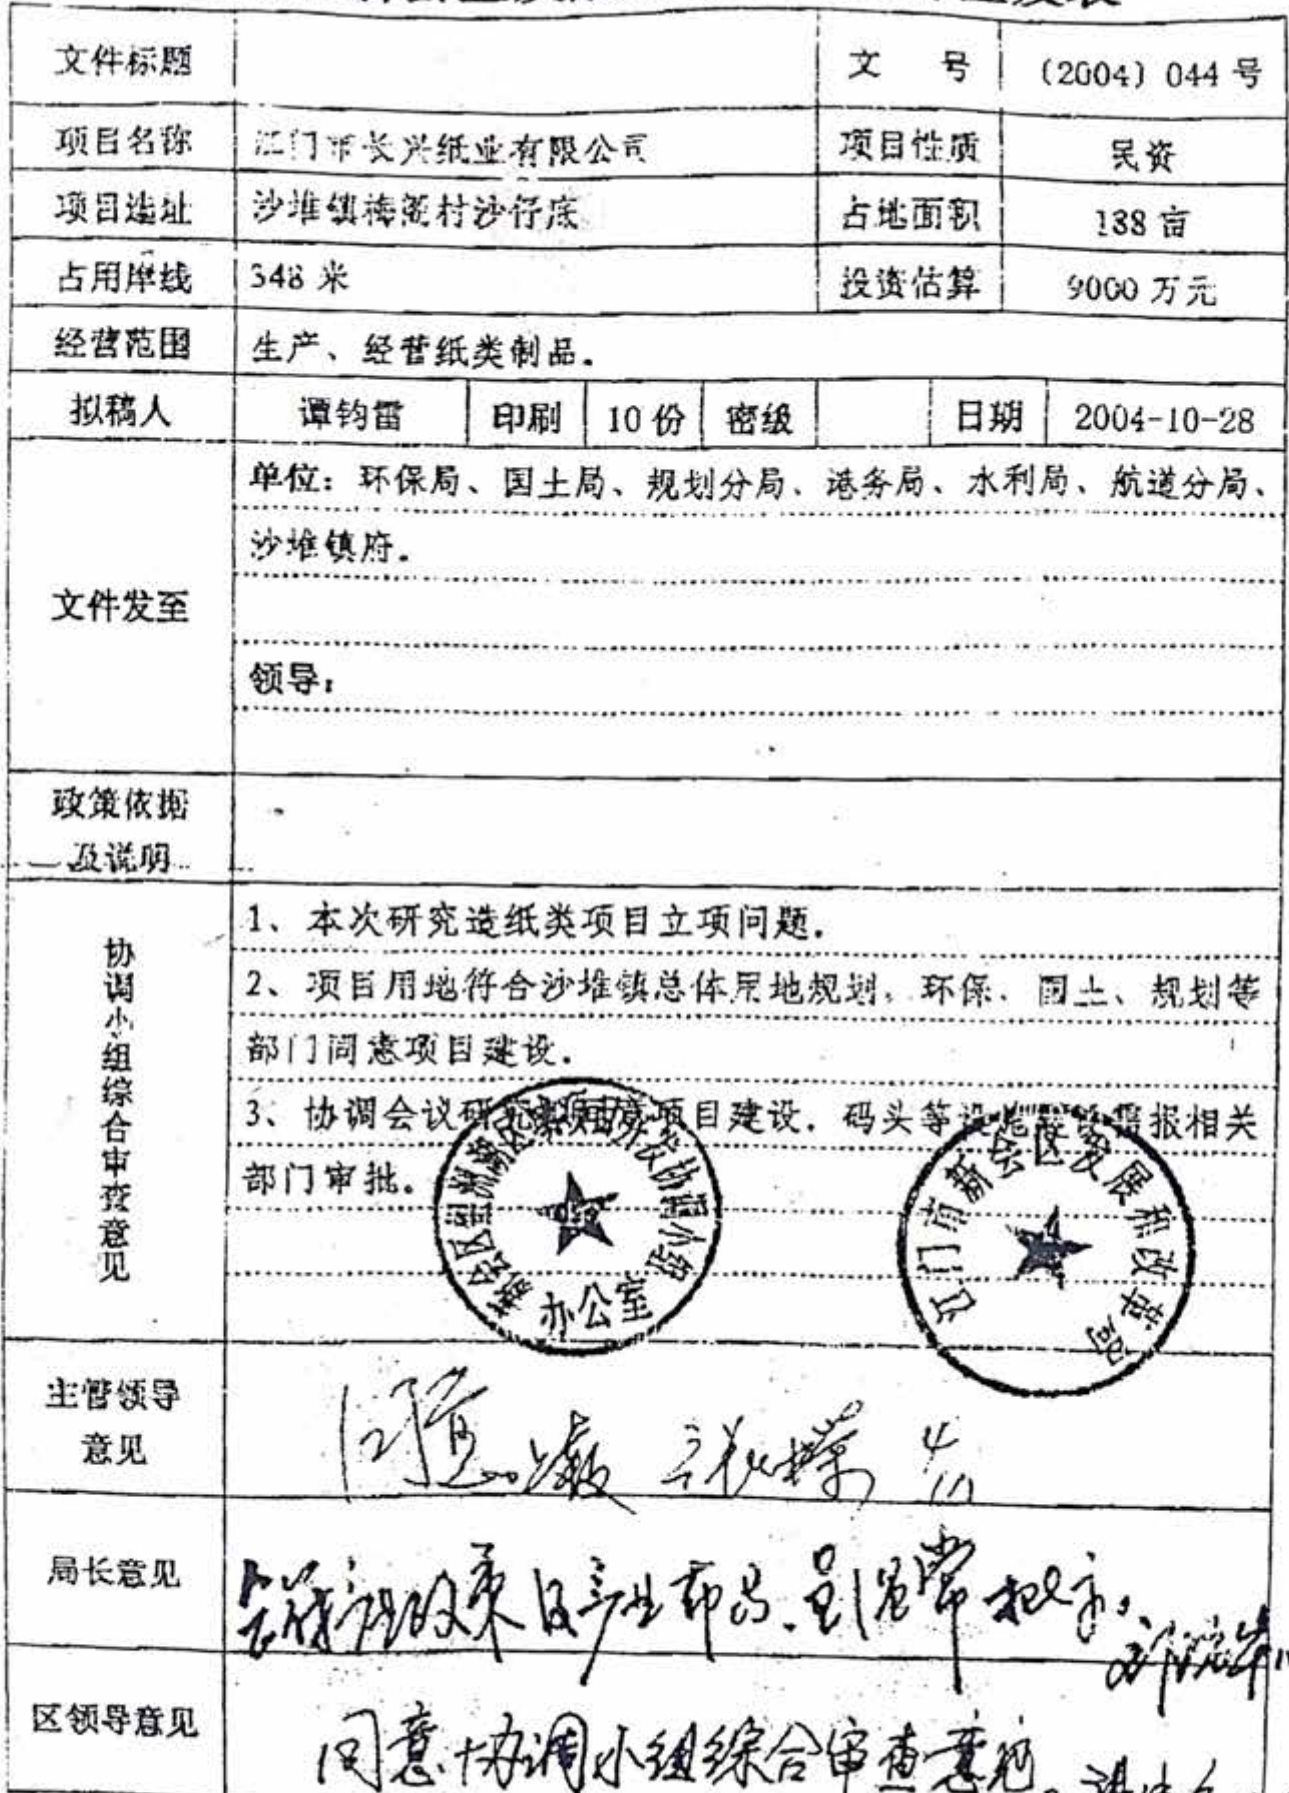 文件标题 文 号 (2004) 044 号
项目名称 江门市长兴纸业有限公司 项目性质 民资
项目选址 沙堆镇梅阁村沙仔底 占地面积 188 亩
占用岸线 348 米 投资估算 9000 万元
经营范围 生产、经营纸类制品.
拟稿人 谭钧雷 印刷 10 份 密级 日期 2004-10-28
文件发至
单位: 环保局、国土局、规划分局、港务局、水利局、航道分局、
沙堆镇府.
领导:
政策依据
及说明
协调小组综合审查意见
1、本次研究造纸类项目立项问题.
2、项目用地符合沙堆镇总体用地规划. 环保、国土、规划等
部门同意项目建设.
3、协调会议研究 项目建设. 码头等设 报相关
部门审批.
办公室
江门市新会区发展和改革局
主管领导
意见
局长意见
区领导意见
同意协调小组综合审查意见.